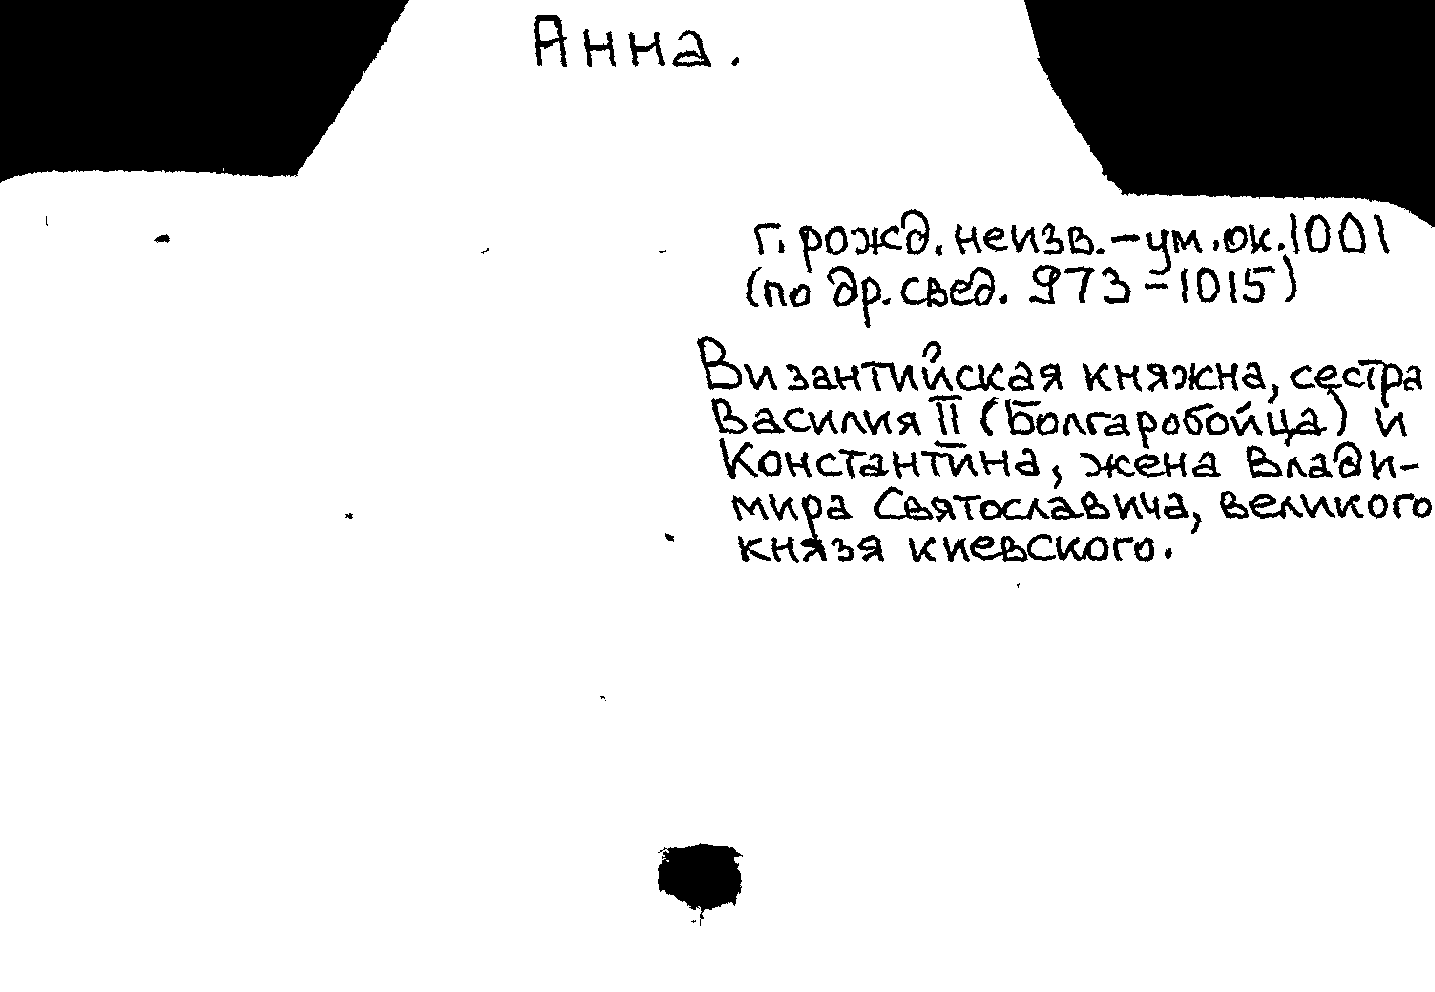 Анна.
г. рожд. неизв. – ум. ок. 1001
(по др. свед. 973 – 1015)
Византийская княжна, сестра
Василия II (Болгаробойца) и
Константина, жена Влади-
мира Святославича, великого
князя киевского.